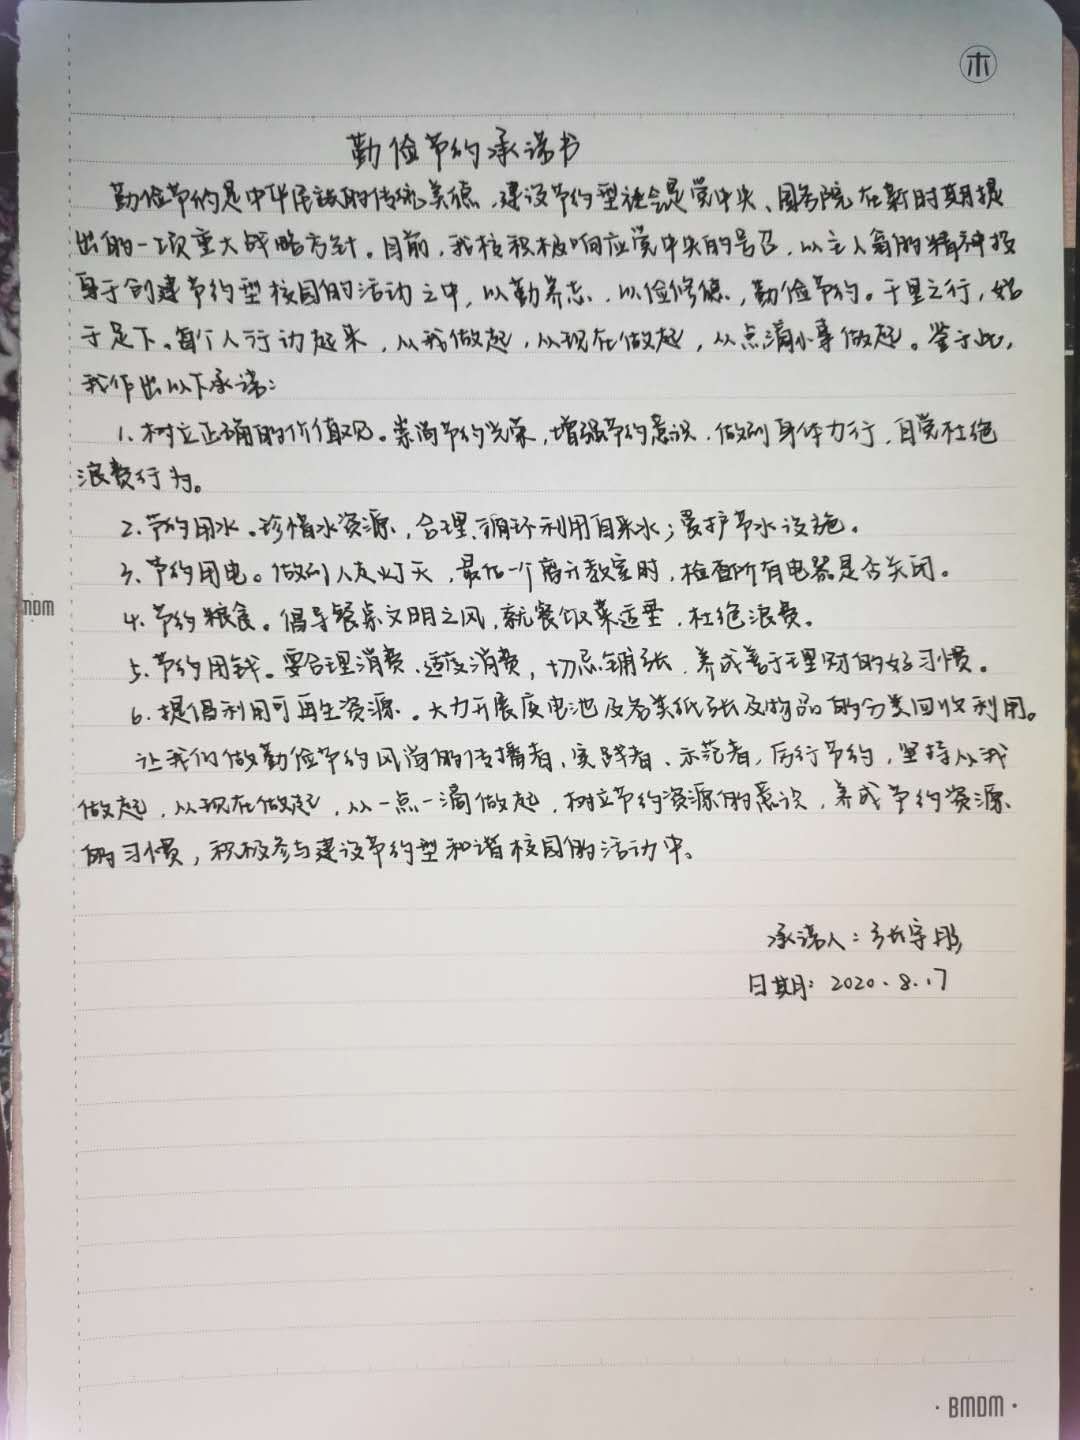 木
勤俭节约承诺书
勤俭节约是中华民族的传统美德,建设节约型社会是党中央、国务院在新时期提
出的一项重大战略方针。目前,我校积极响应党中央的号召,以主人翁的精神投
身于创建节约型校园的活动之中,以勤养志、以俭修德,勤俭节约。千里之行,始
于足下。每个人行动起来,从我做起,从现在做起,从点滴小事做起。鉴于此,
我作出以下承诺:
1.树立正确的价值观。崇尚节约光荣,增强节约意识,做到身体力行,自觉杜绝
浪费行为。
2.节约用水。珍惜水资源,合理、循环利用自来水;爱护节水设施。
3.节约用电。做到人走灯灭,最后一个离开教室时,检查所有电器是否关闭。
4.节约粮食。倡导餐桌文明之风,就餐饭菜适量,杜绝浪费。
5.节约用钱。要合理消费、适度消费,切忌铺张,养成善于理财的好习惯。
6.提倡利用可再生资源。大力开展废电池及各类纸张及物品的分类回收利用。
让我们做勤俭节约风尚的传播者、实践者、示范者,厉行节约,坚持从我
做起,从现在做起,从一点一滴做起,树立节约资源的意识,养成节约资源
的习惯,积极参与建设节约型和谐校园的活动中。
承诺人:张宇彤
日期:2020.8.17
MDM
·BMDM·